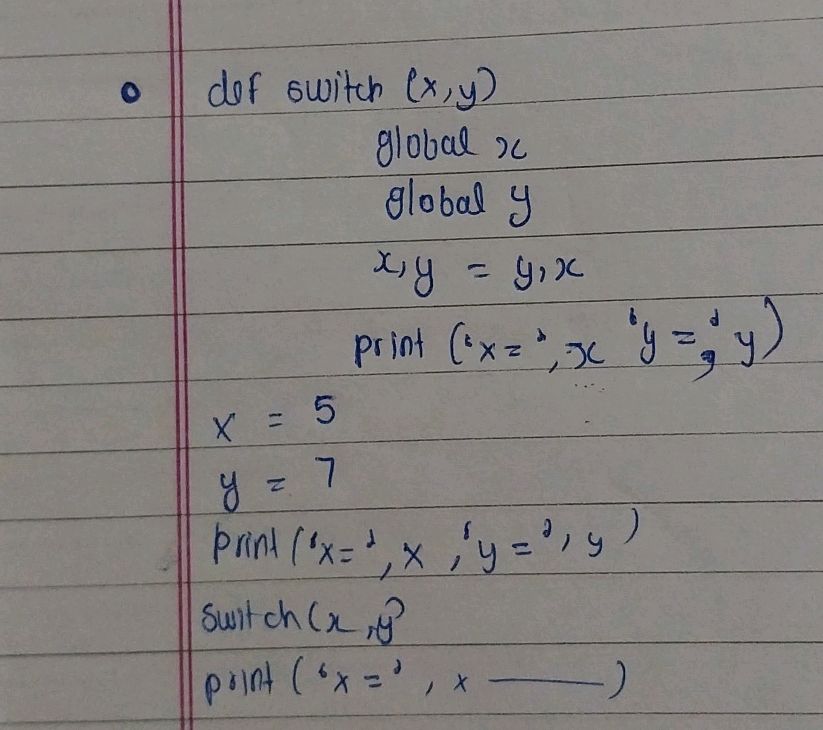 def switch (x,y)
global x
global y
x,y = y,x
print ('x=', x 'y=', y)
x = 5
y = 7
print ('x=', x, 'y=', y)
switch (x,y)
print ('x=', x ——)